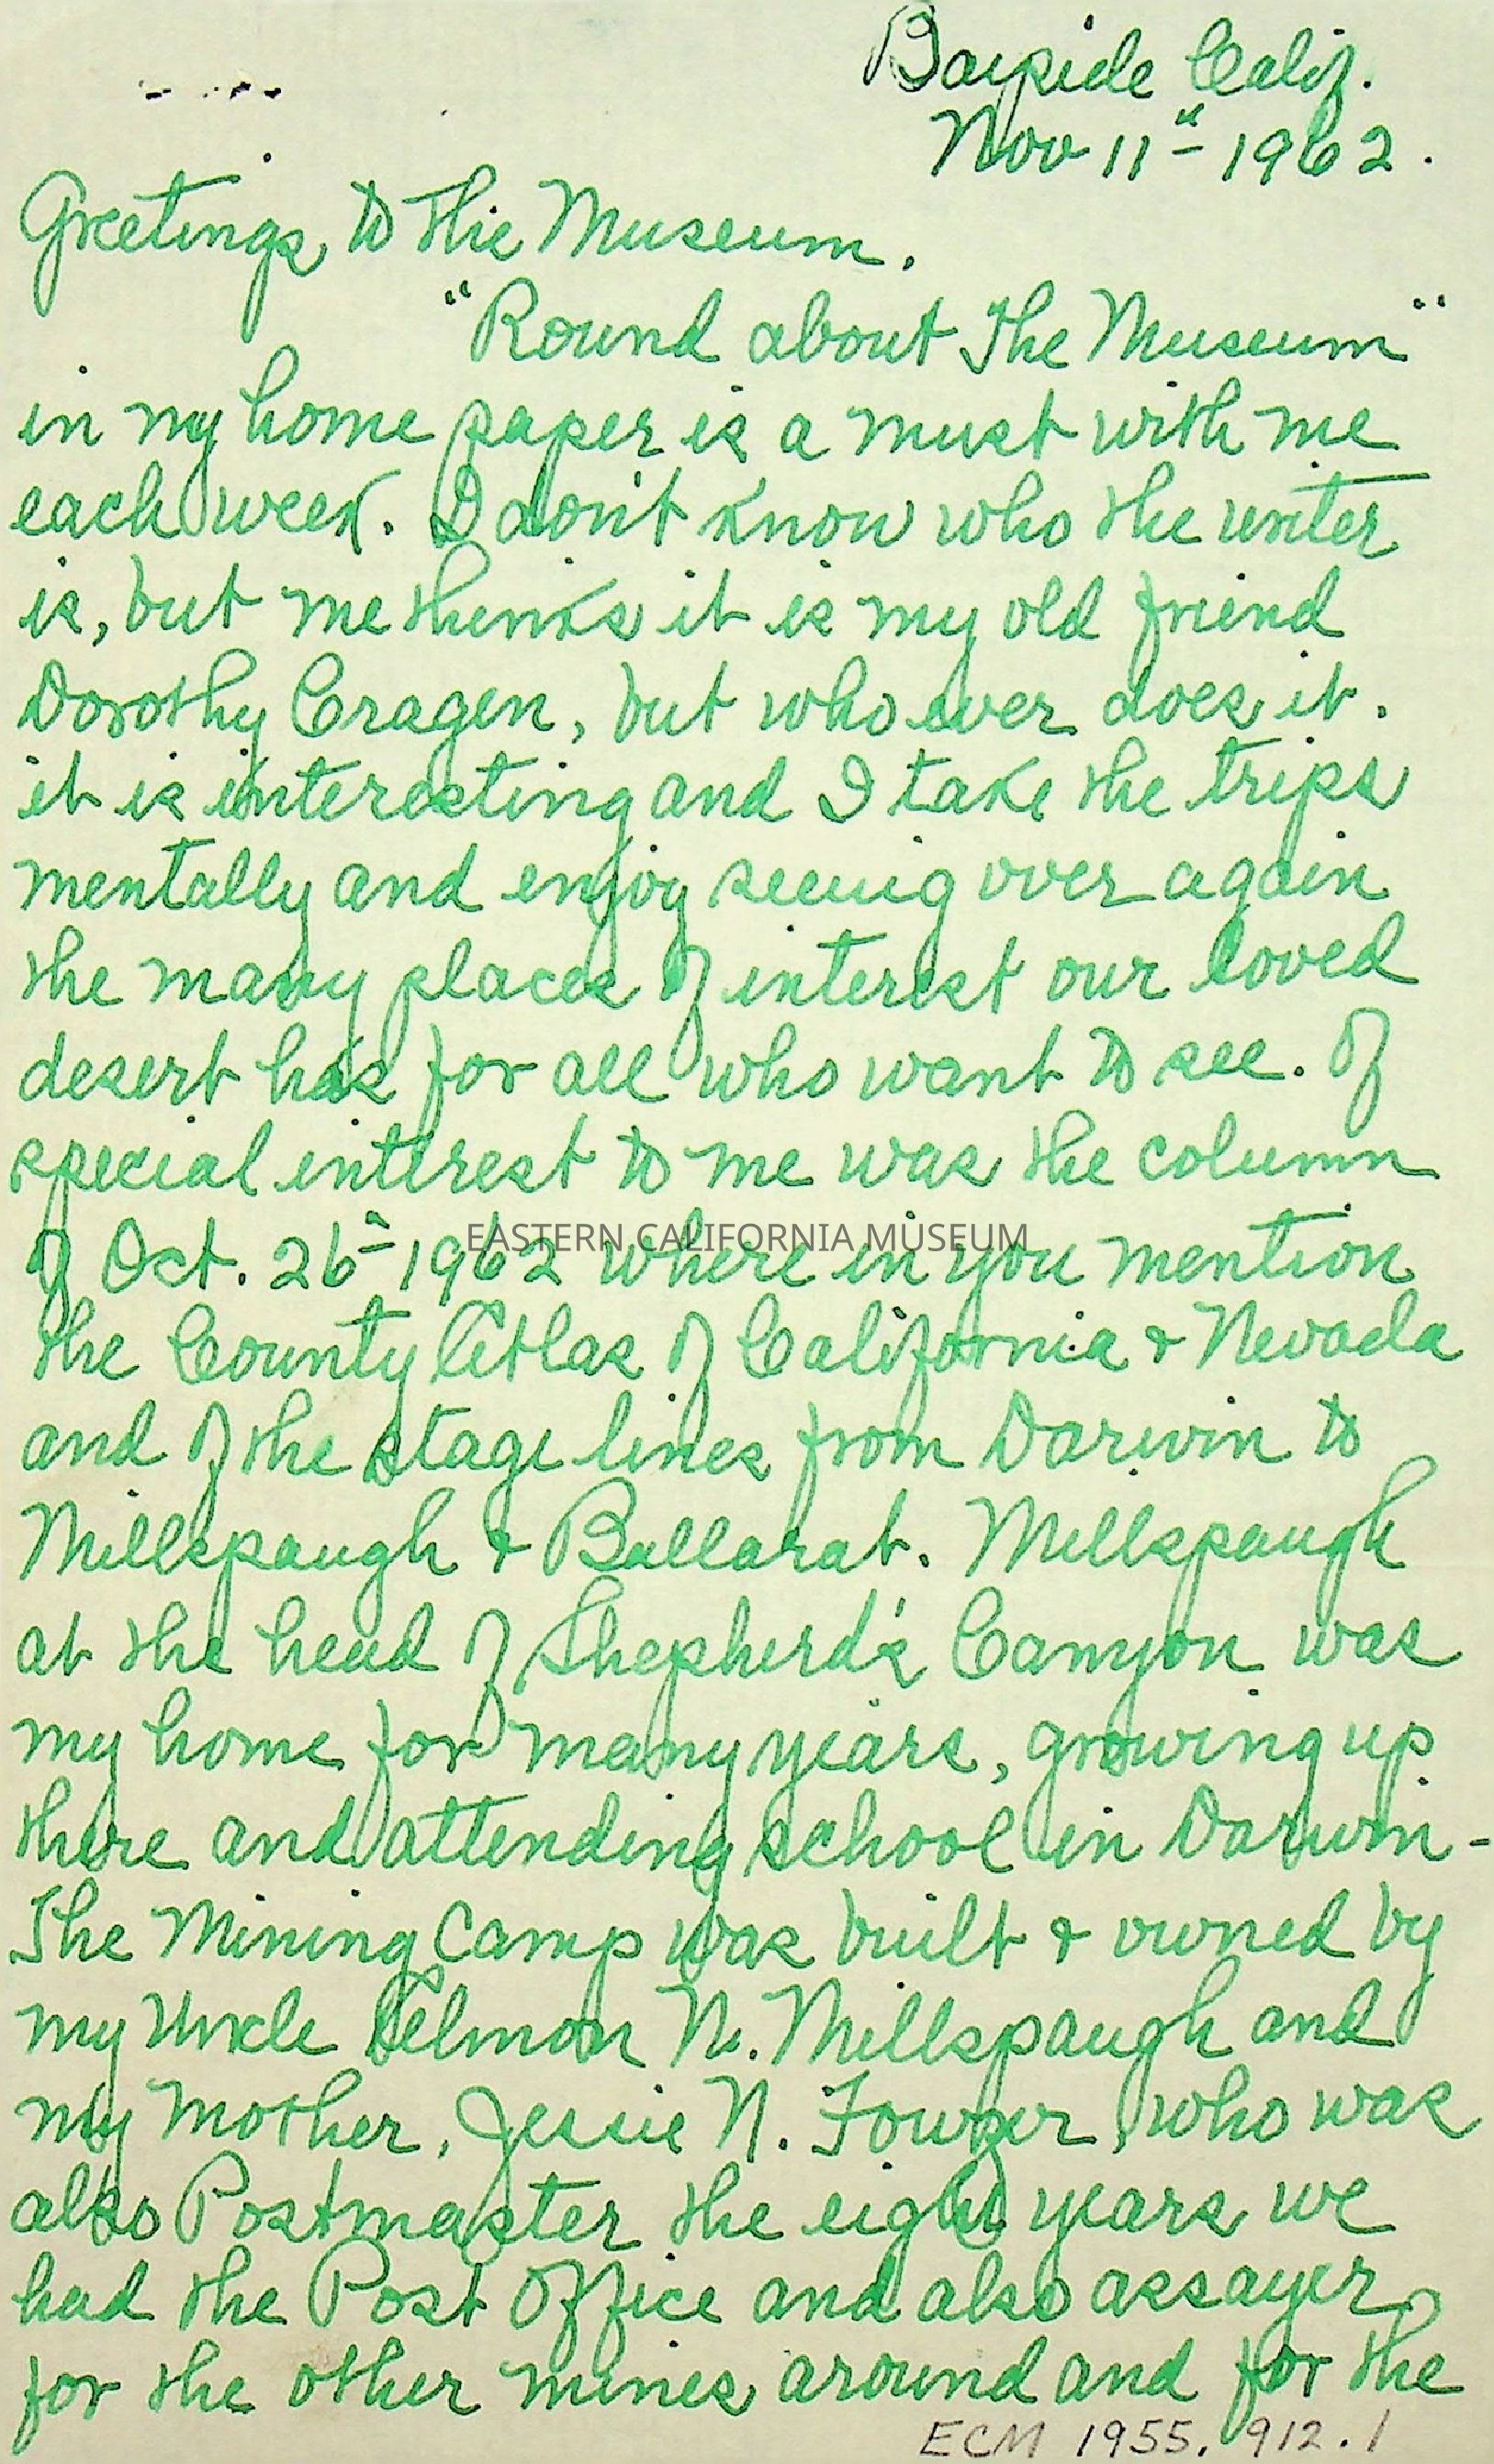 Bayside Calif.
Nov 11th 1962.
Greetings to the Museum.
"Round about The Museum"
in my home paper is a must with me
each week. I don't know who the writer
is, but me thinks it is my old friend
Dorothy Cragen, but who ever does it.
it is interesting and I take the trips
mentally and enjoy seeing over again
the many places of interest our loved
desert has for all who want to see. Of
special interest to me was the column
of Oct. 26th 1962 where in you mention
EASTERN CALIFORNIA MUSEUM
the County Atlas of California & Nevada
and of the stage lines from Darwin to
Millspaugh & Ballarat. Millspaugh
at the head of Shepherd's Canyon was
my home for many years, growing up
there and attending school in Darwin -
The Mining Camp was built & owned by
my Uncle Almon N. Millspaugh and
my Mother, Jessie N. Fowler, who was
also Postmaster the eight years we
had the Post Office and also assayer
for the other mines around and for the
ECM 1955.912.1